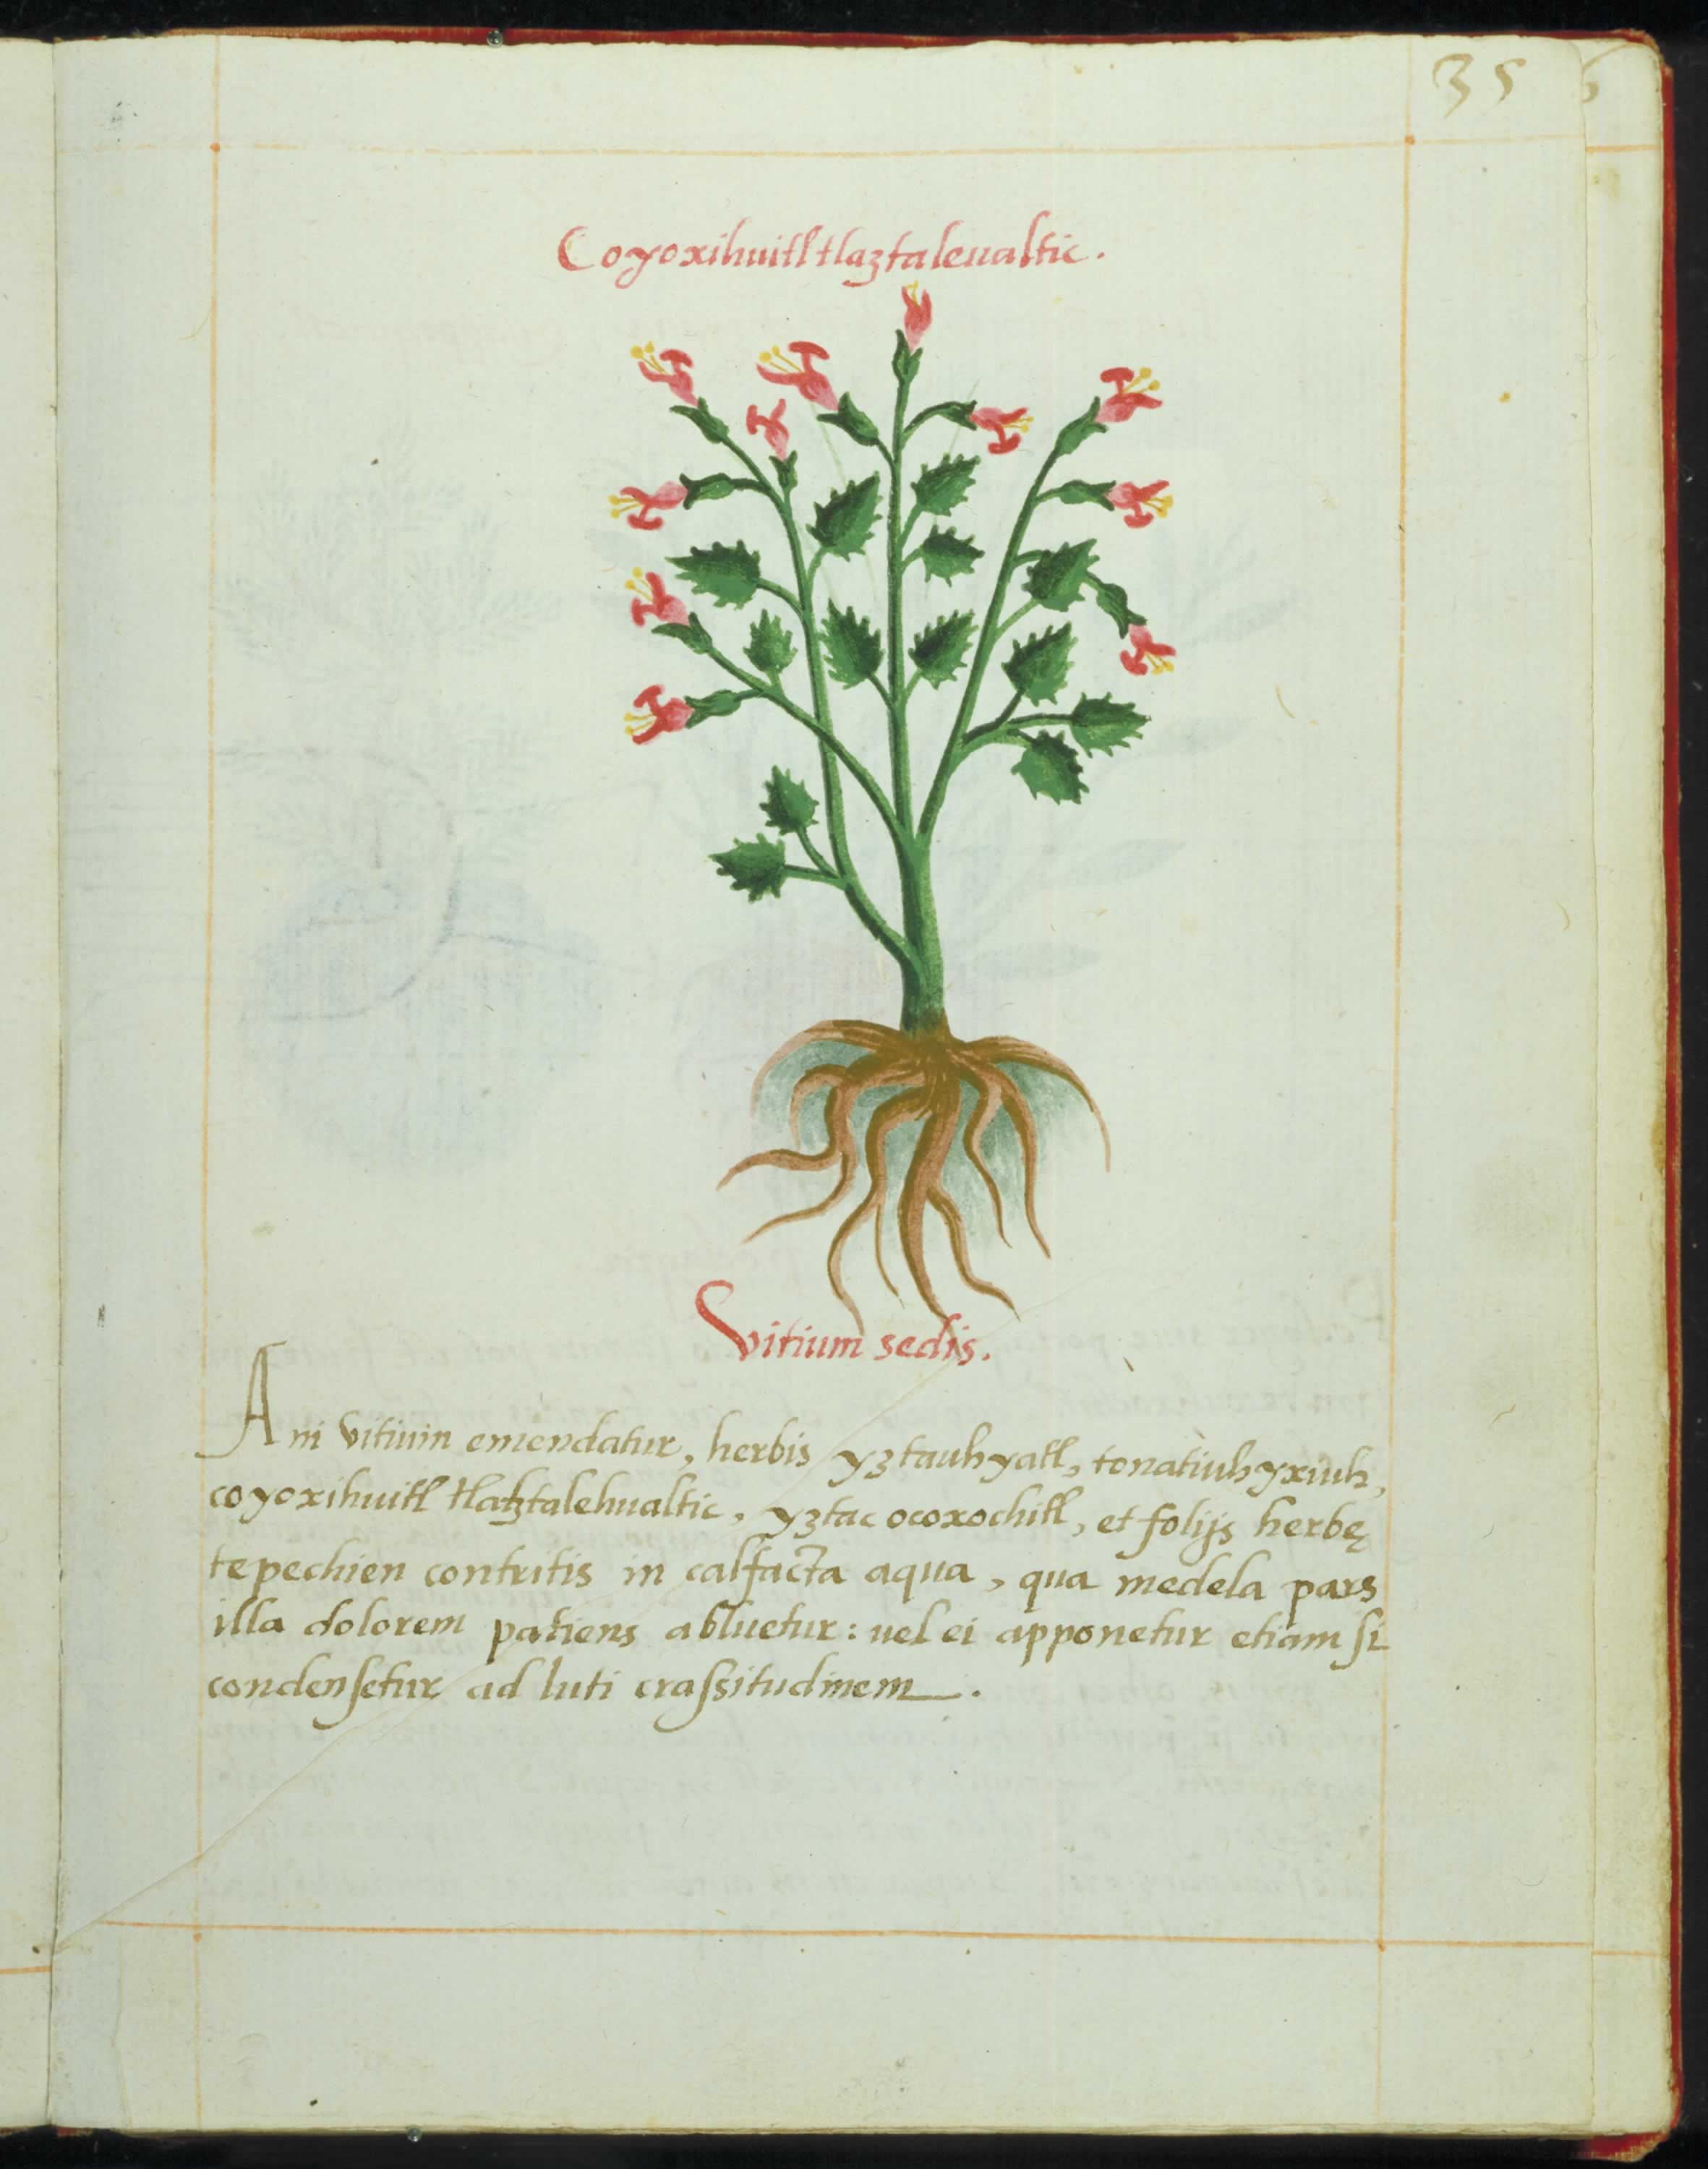 35
Coyoxihuitl tlaztaleualtic.
Vitium sedis.
Ani vitium emendatur, herbis yztauhyatl, tonatiuhyxiuh,
coyoxihuitl tlatztalehualtic, yztac ocoxochitl, et folijs herbę
tepechien contritis in calfacta aqua, qua medela pars
illa dolorem patiens abluetur: uel ei apponetur etiam si
condensetur ad luti crassitudinem.